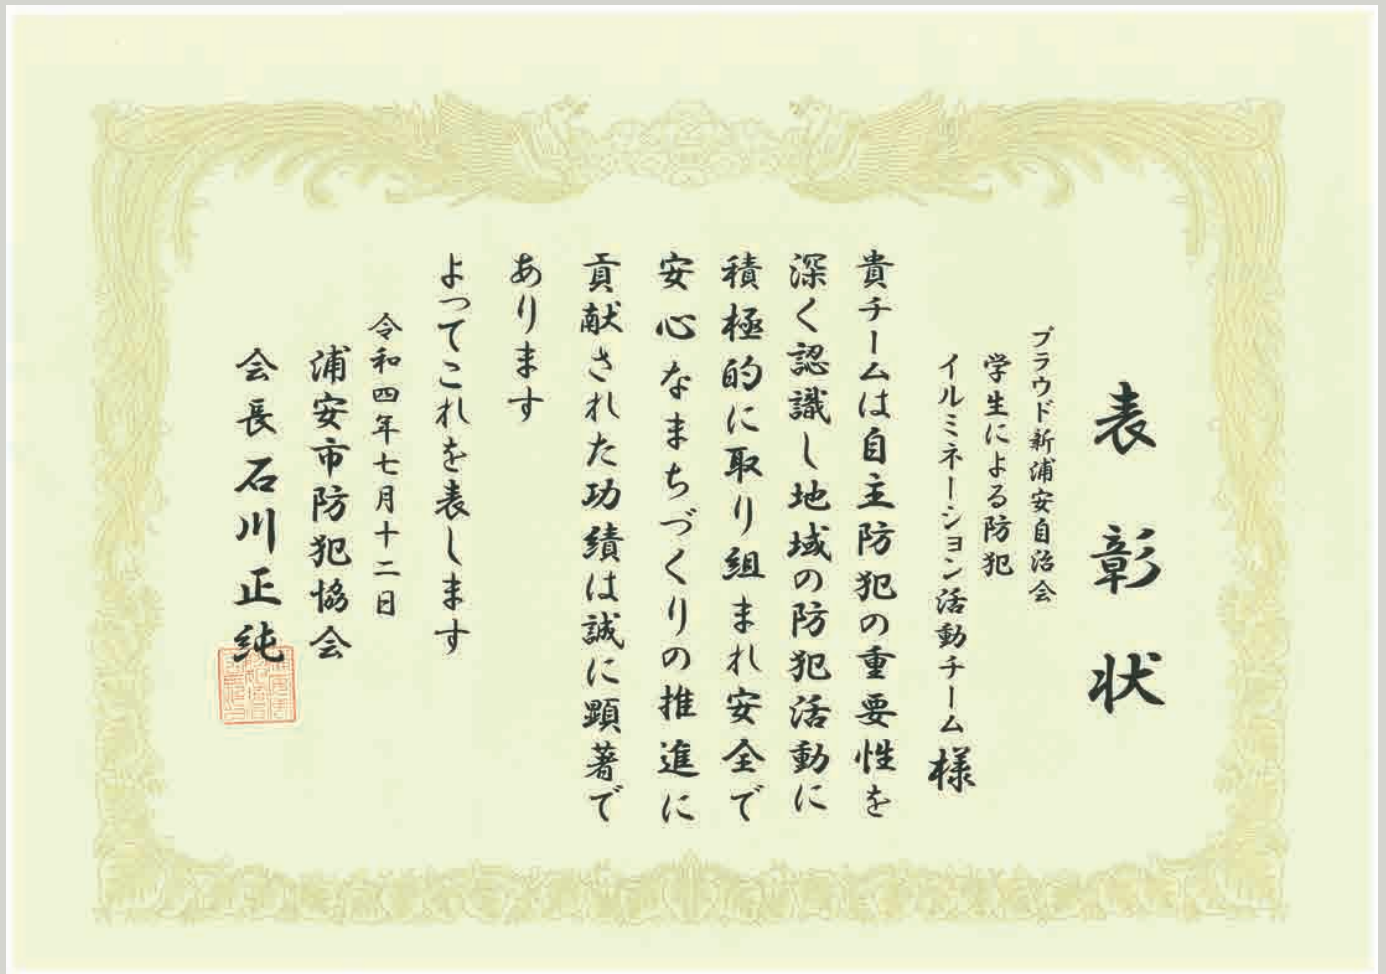 表彰状
プラウド新浦安自治会
学生による防犯
イルミネーション活動チーム様
貴チームは自主防犯の重要性を
深く認識し地域の防犯活動に
積極的に取り組まれ安全で
安心なまちづくりの推進に
貢献された功績は誠に顕著で
あります
よってこれを表します
令和四年七月十二日
浦安市防犯協会
会長石川正純